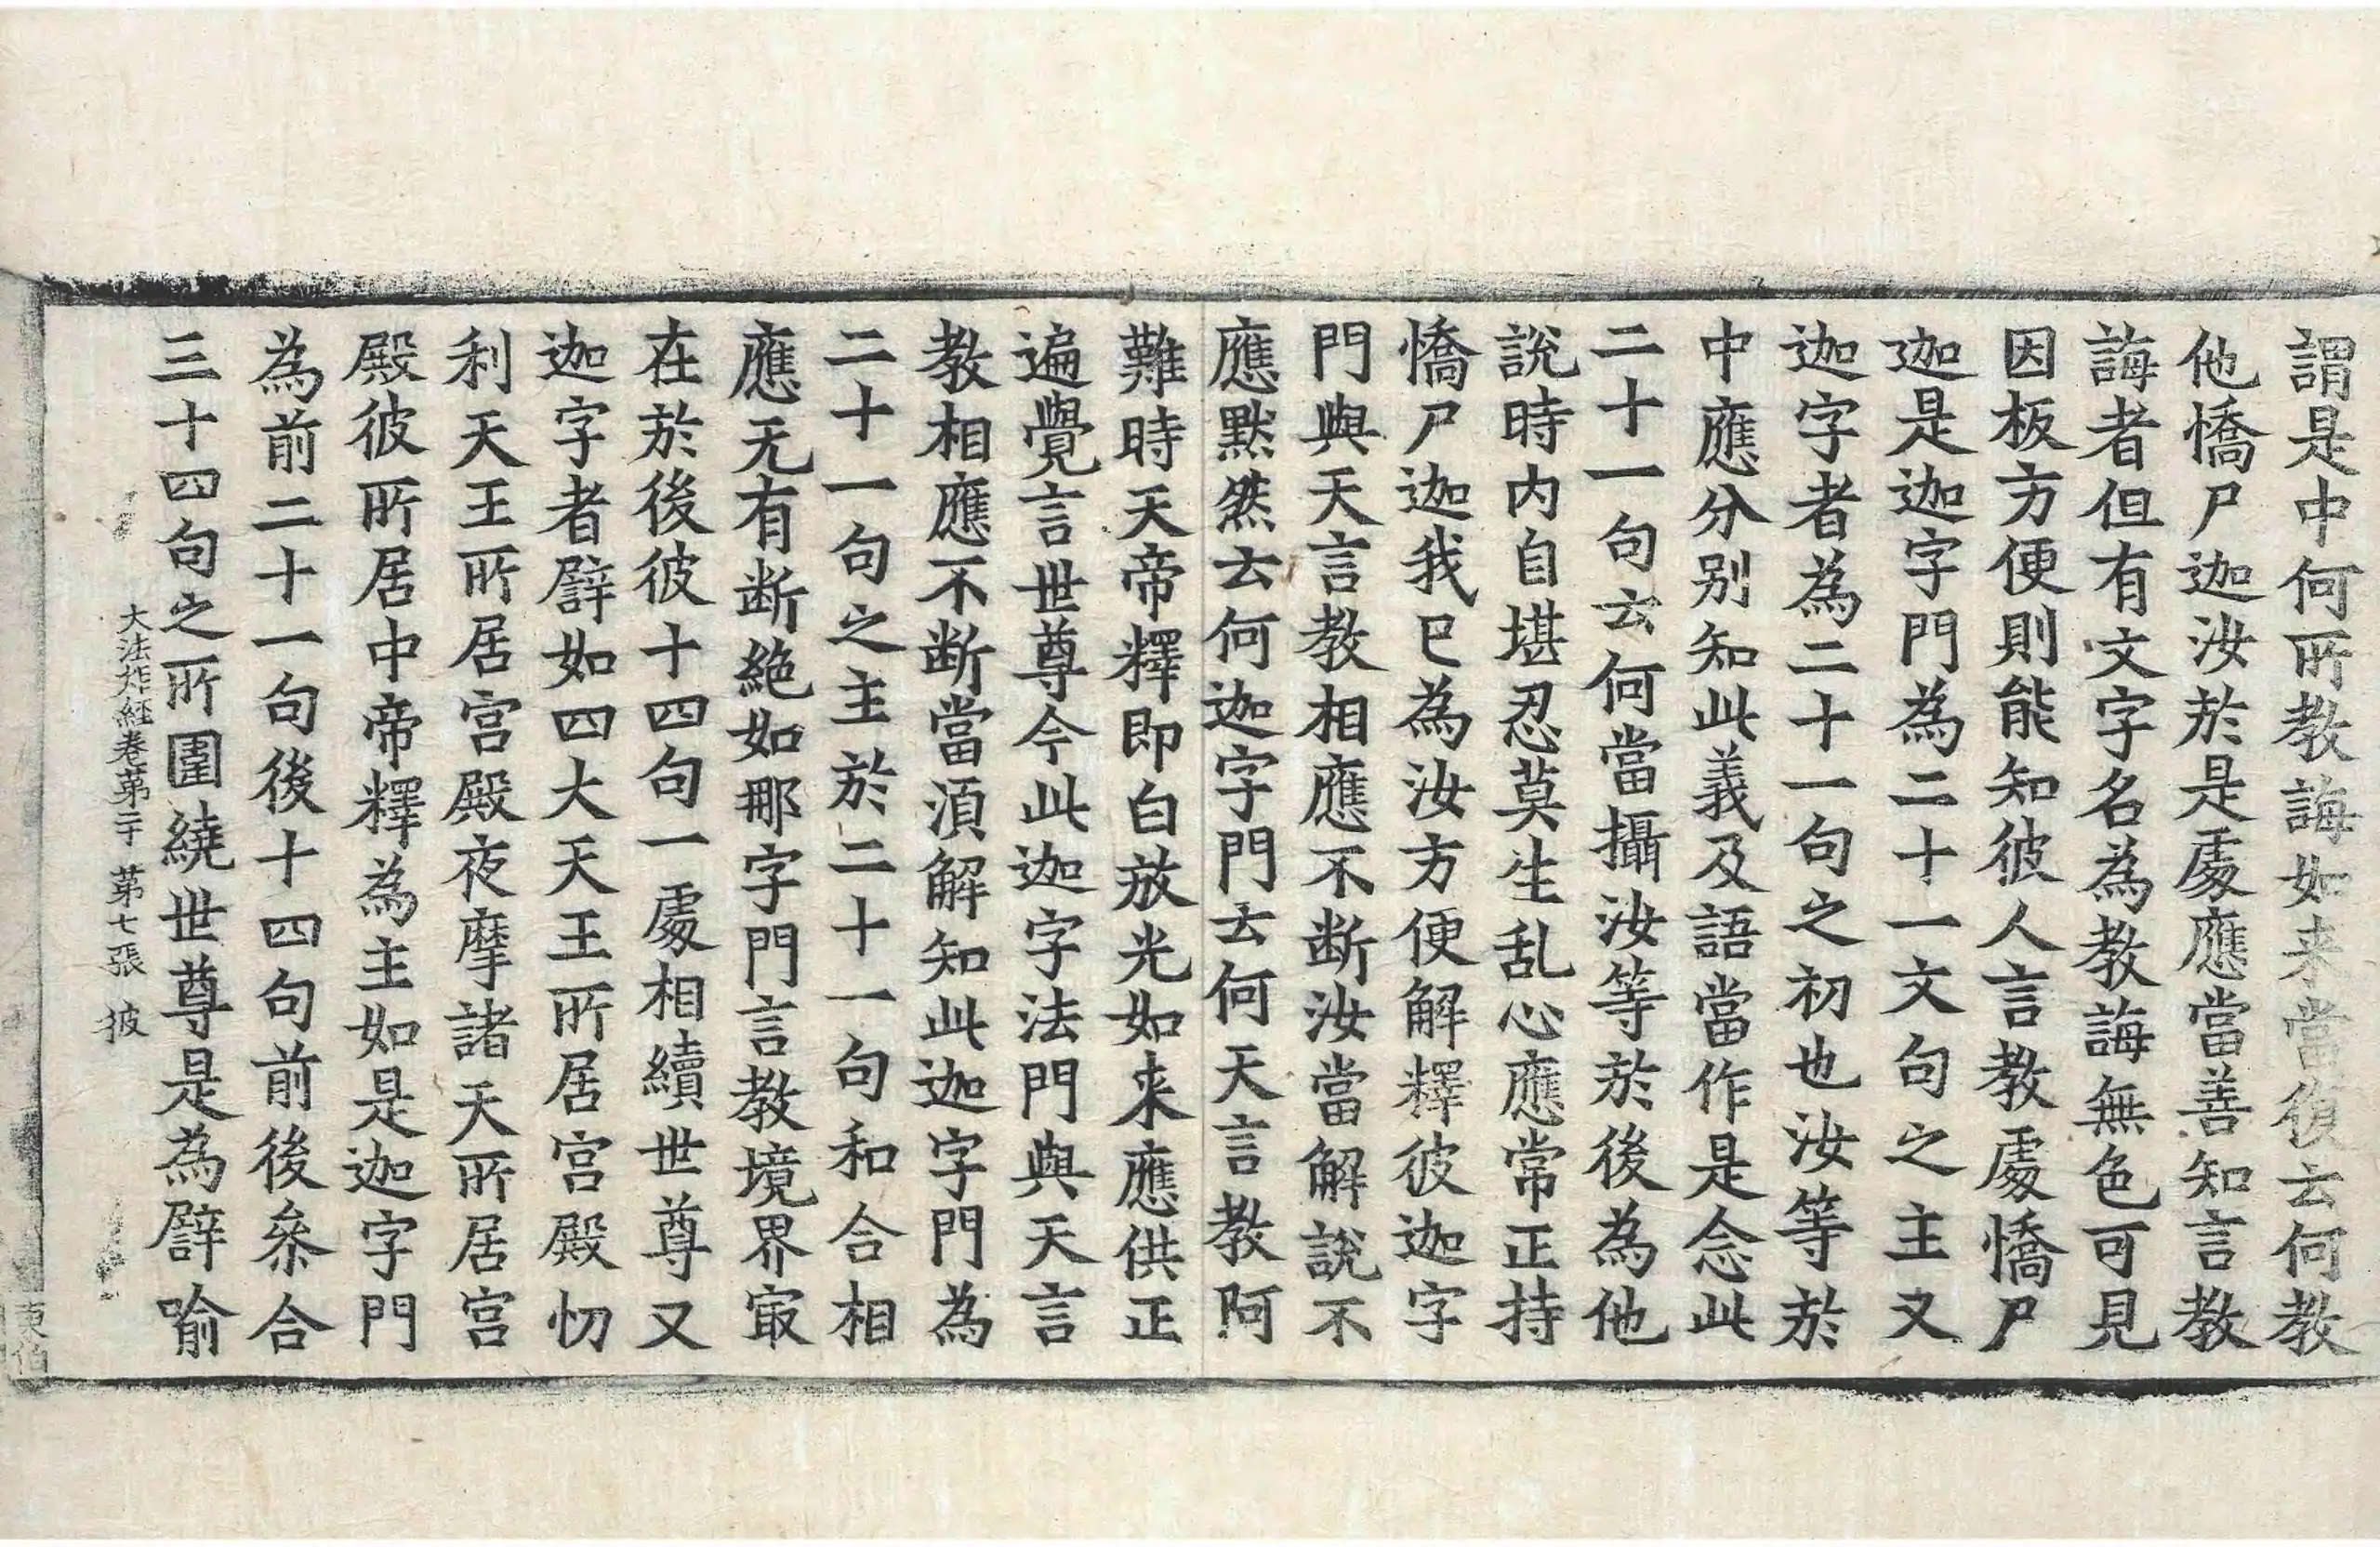 謂是中何所教誨如来當復云何教
他憍尸迦汝於是處應當善知言教
誨者但有文字名為教誨無色可見
因板方便則能知彼人言教處憍尸
迦是迦字門為二十一文句之主又
迦字者為二十一句之初也汝等於
中應分别知此義及語當作是念此
二十一句云何當攝汝等於後為他
說時内自堪忍莫生乱心應常正持
憍尸迦我已為汝方便解釋彼迦字
門與天言教相應不断汝當解說不
應默然云何迦字門云何天言教阿
難時天帝釋即白放光如来應供正
遍覺言世尊今此迦字法門與天言
教相應不断當湏解知此迦字門為
二十一句之主於二十一句和合相
應无有断絶如那字門言教境界㝡
在於後彼十四句一處相續世尊又
迦字者譬如四大天王所居宫殿忉
利天王所居宫殿夜摩諸天所居宫
殿彼所居中帝釋為主如是迦字門
為前二十一句後十四句前後叅合
三十四句之所圍繞世尊是為譬喻
大法炬経卷苐二十 苐七張 披